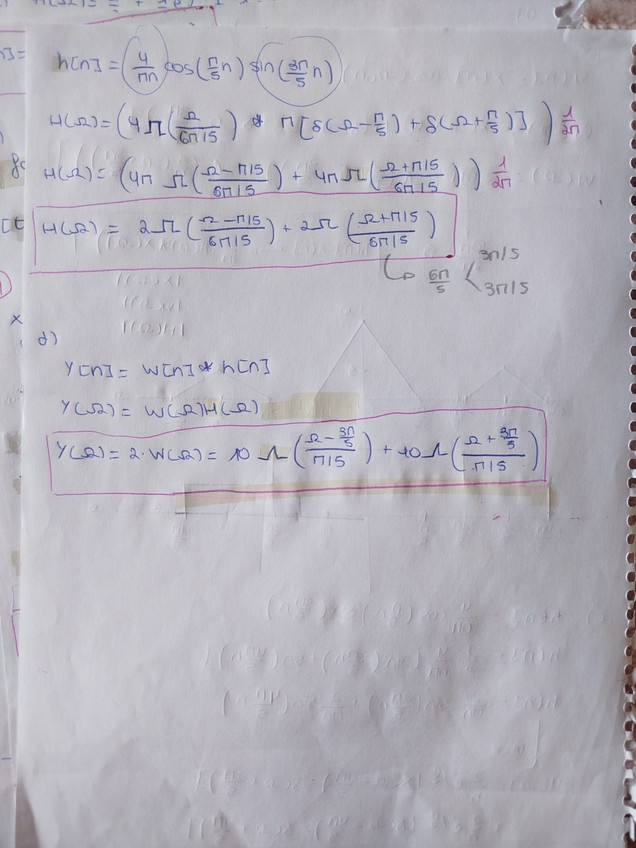 h[n] = (4/πn) cos(π/5 n) sin(3π/5 n)
H(Ω) = (4 Π(Ω/(6π/5)) * π[δ(Ω-π/5) + δ(Ω+π/5)]) 1/2π
H(Ω) = (4π Π((Ω-π/5)/(6π/5)) + 4π Π((Ω+π/5)/(6π/5))) 1/2π
H(Ω) = 2Π((Ω-π/5)/(6π/5)) + 2Π((Ω+π/5)/(6π/5))
↳ 6π/5 < 3π/5
3π/5
d)
Y[n] = W[n] * h[n]
Y(Ω) = W(Ω)H(Ω)
Y(Ω) = 2·W(Ω) = 10 Λ((Ω-3π/5)/(π/5)) + 10 Λ((Ω+3π/5)/(π/5))